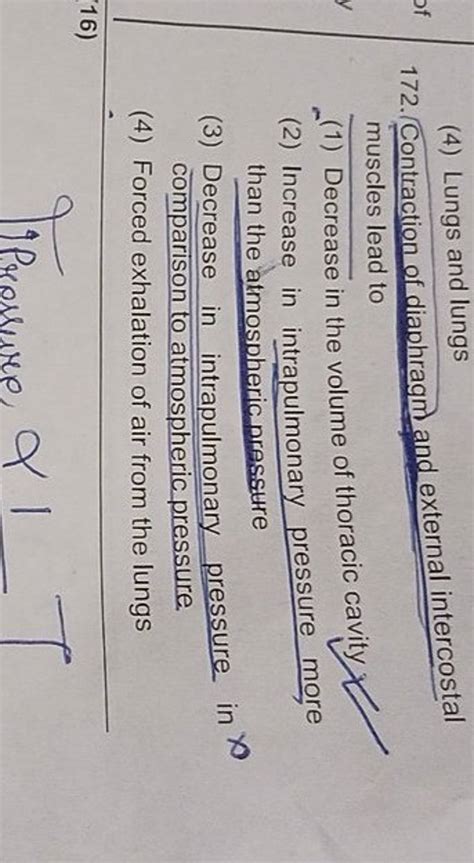 of
y
(4) Lungs and lungs
172. Contraction of diaphragm and external intercostal
muscles lead to
(1) Decrease in the volume of thoracic cavity
(2) Increase in intrapulmonary pressure more
than the atmospheric pressure
(3) Decrease in intrapulmonary pressure in
comparison to atmospheric pressure
(4) Forced exhalation of air from the lungs
16)
Pressure α 1